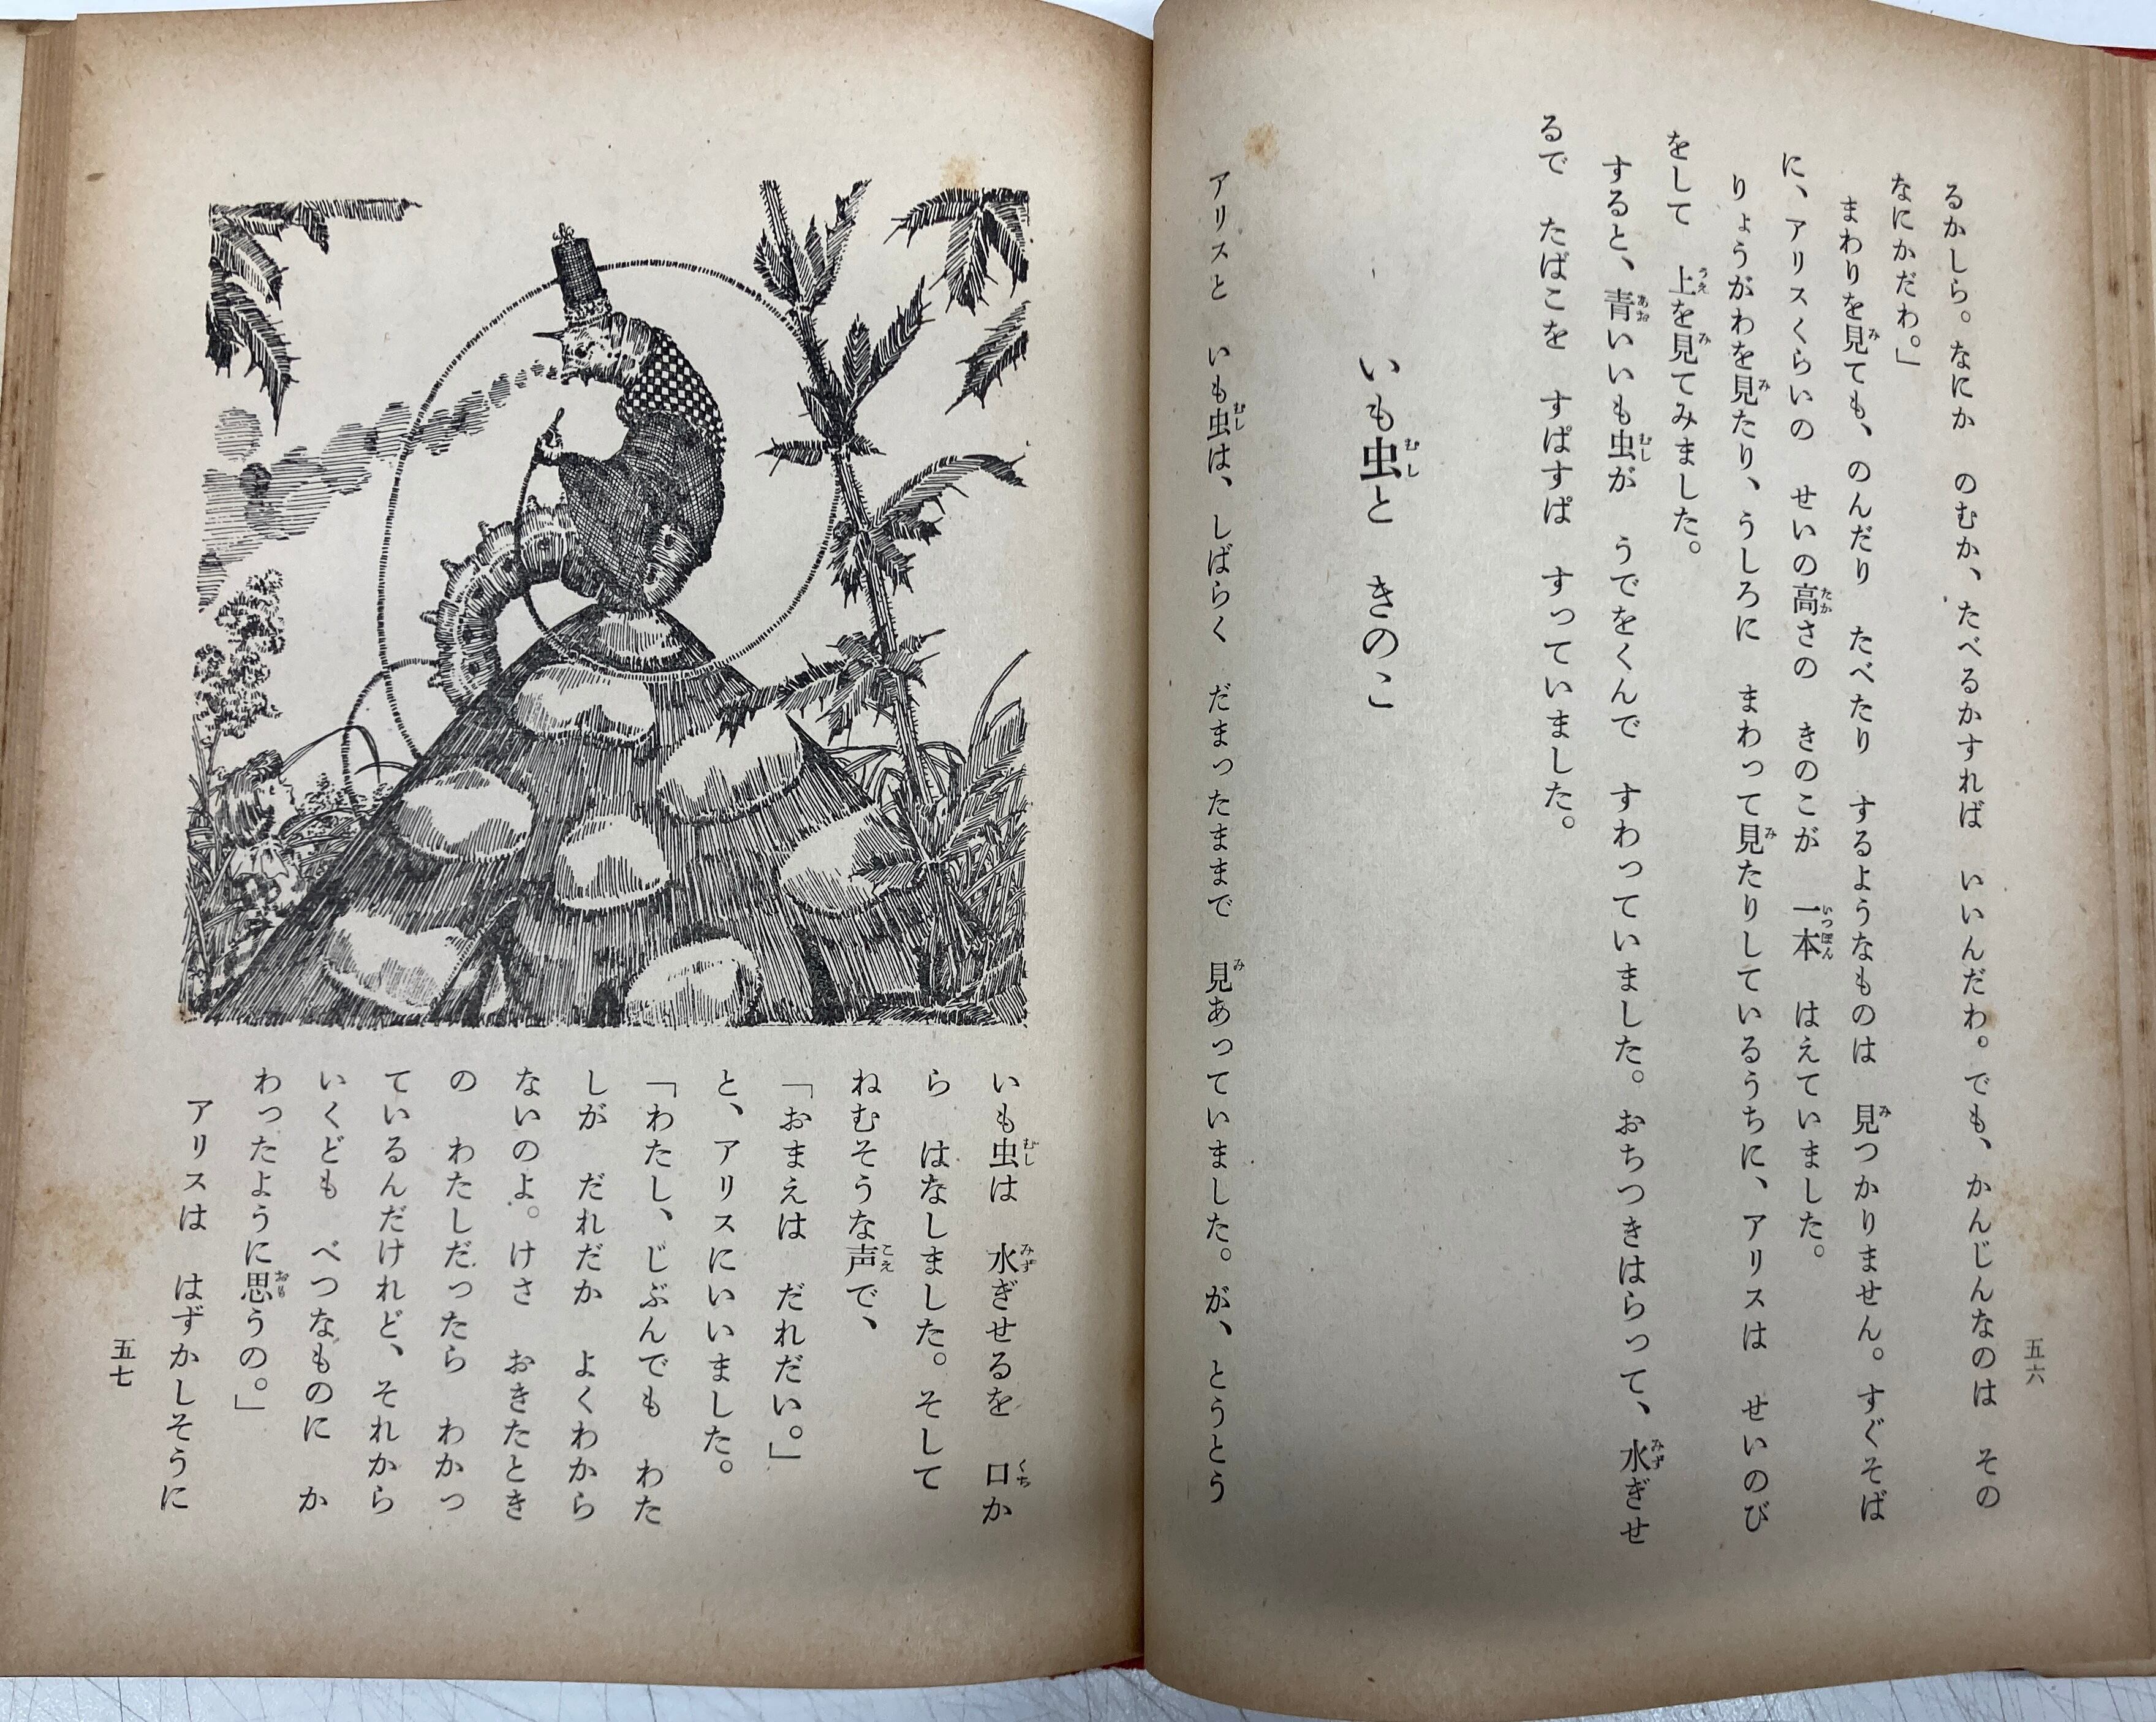 るかしら。なにか　のむか、たべるかすれば　いいんだわ。でも、かんじんなのは　その
なにかだわ。」
まわりを見ても、のんだり　たべたり　するようなものは　見つかりません。すぐそば
に、アリスくらいの　せいの高さの　きのこが　一本　はえていました。
りょうがわを見たり、うしろに　まわって見たりしているうちに、アリスは　せいのび
をして　上を見てみました。
すると、青いいも虫が　うでをくんで　すわっていました。おちつきはらって、水ぎせ
るで　たばこを　すぱすぱ　すっていました。
いも虫と　きのこ
アリスと　いも虫は、しばらく　だまったままで　見あっていました。が、とうとう
五六
いも虫は　水ぎせるを　口か
ら　はなしました。そして
ねむそうな声で、
「おまえは　だれだい。」
と、アリスにいいました。
「わたし、じぶんでも　わた
しが　だれだか　よくわから
ないのよ。けさ　おきたとき
の　わたしだったら　わかっ
ているんだけれど、それから
いくども　べつなものに　か
わったように思うの。」
アリスは　はずかしそうに
五七